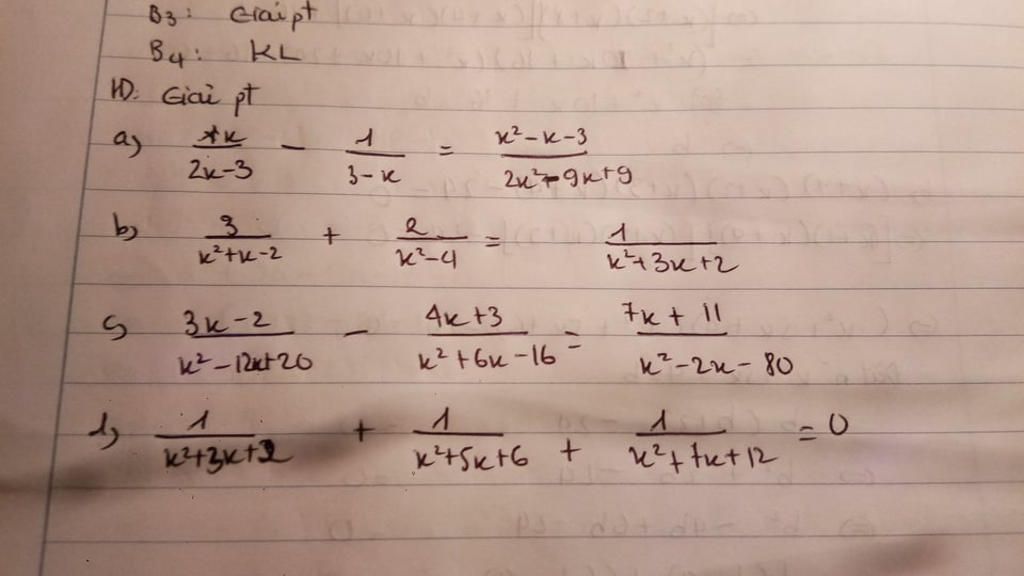 B3: Giải pt
B4: KL
HD. Giải pt
a) x/(2x-3) - 1/(3-x) = (x²-x-3)/(2x²-9x+9)
b) 3/(x²+x-2) + 2/(x²-4) = 1/(x²+3x+2)
c) (3x-2)/(x²-12x+20) - (4x+3)/(x²+6x-16) = (7x+11)/(x²-2x-80)
d) 1/(x²+3x+2) + 1/(x²+5x+6) + 1/(x²+7x+12) = 0